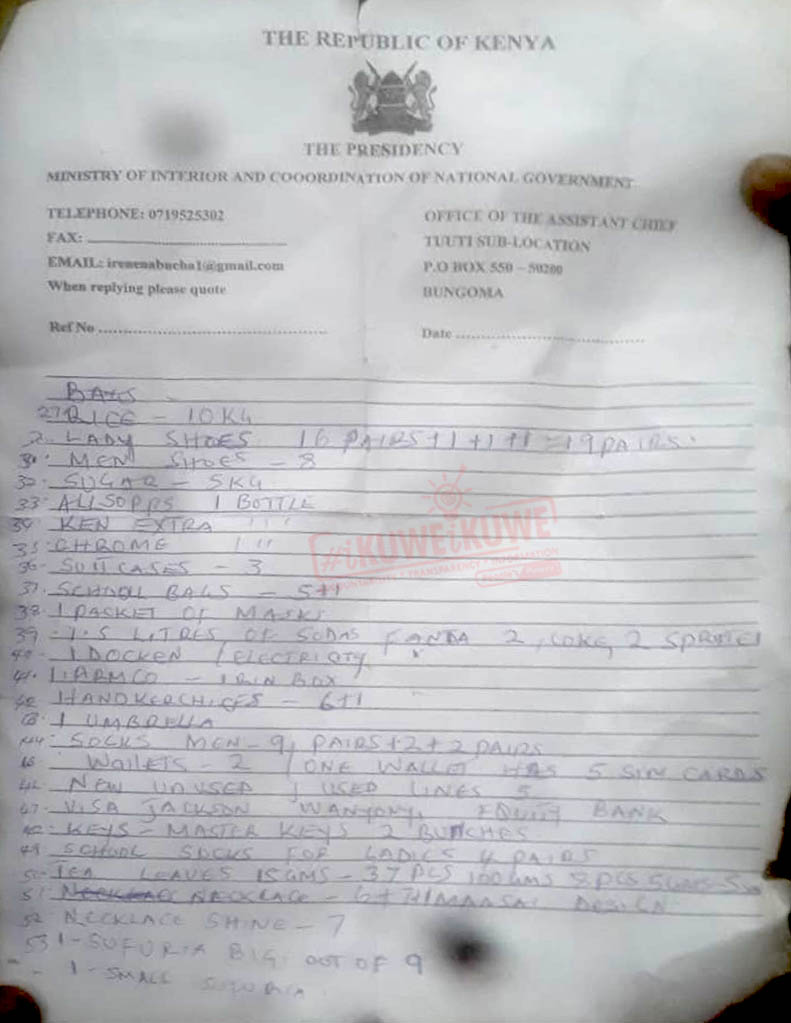 THE REPUBLIC OF KENYA
THE PRESIDENCY
MINISTRY OF INTERIOR AND COOORDINATION OF NATIONAL GOVERNMENT
TELEPHONE: 0719525302
FAX: ...............
EMAIL: irenenabucha1@gmail.com
When replying please quote
Ref No ...............
OFFICE OF THE ASSISTANT CHIEF
TUUTI SUB-LOCATION
P.O BOX 550 – 50200
BUNGOMA
Date ...............
BAGS
RICE - 10KG
LADY SHOES 16 PAIRS+1+1+1 = 19 PAIRS
MEN SHOES - 8
32. SUGAR - 5KG
33. ALLSOPPS 1 BOTTLE
34. KEN EXTRA 1 "
35. CHROME 1 "
36. SUITCASES - 3
37. SCHOOL BAGS - 5+1
38. 1 PACKET OF MASKS
39. LITRES OF SODAS FANTA 2, COKE, 2 SPRITE 1
40. 1 DOCKEN / ELECTRICITY
41. 1 BOX
42. HANDKERCHIEFS - 6+1
43. 1 UMBRELLA
44. SOCKS MEN - 9 PAIRS+2+2 PAIRS
WALLETS - 2 / ONE WALLET HAS 5 SIM CARDS
46. NEW UNUSED , USED LINES 5
47. VISA JACKSON WANYONYI EQUITY BANK
48. KEYS - MASTER KEYS 2 BUNCHES
49. SCHOOL SOCKS FOR LADIES 4 PAIRS
50. TEA LEAVES 15GMS - 37 PCS 100GMS 8 PCS
51. NECKLACE - 6+ MAASAI DESIGN
52. NECKLACE SHINE - 7
53. 1 - SUFURIA BIG OUT OF 9
1 - SMALL SUFURIA
#iKUWEiKUWE
• TRANSPARENCY • INFORMATION